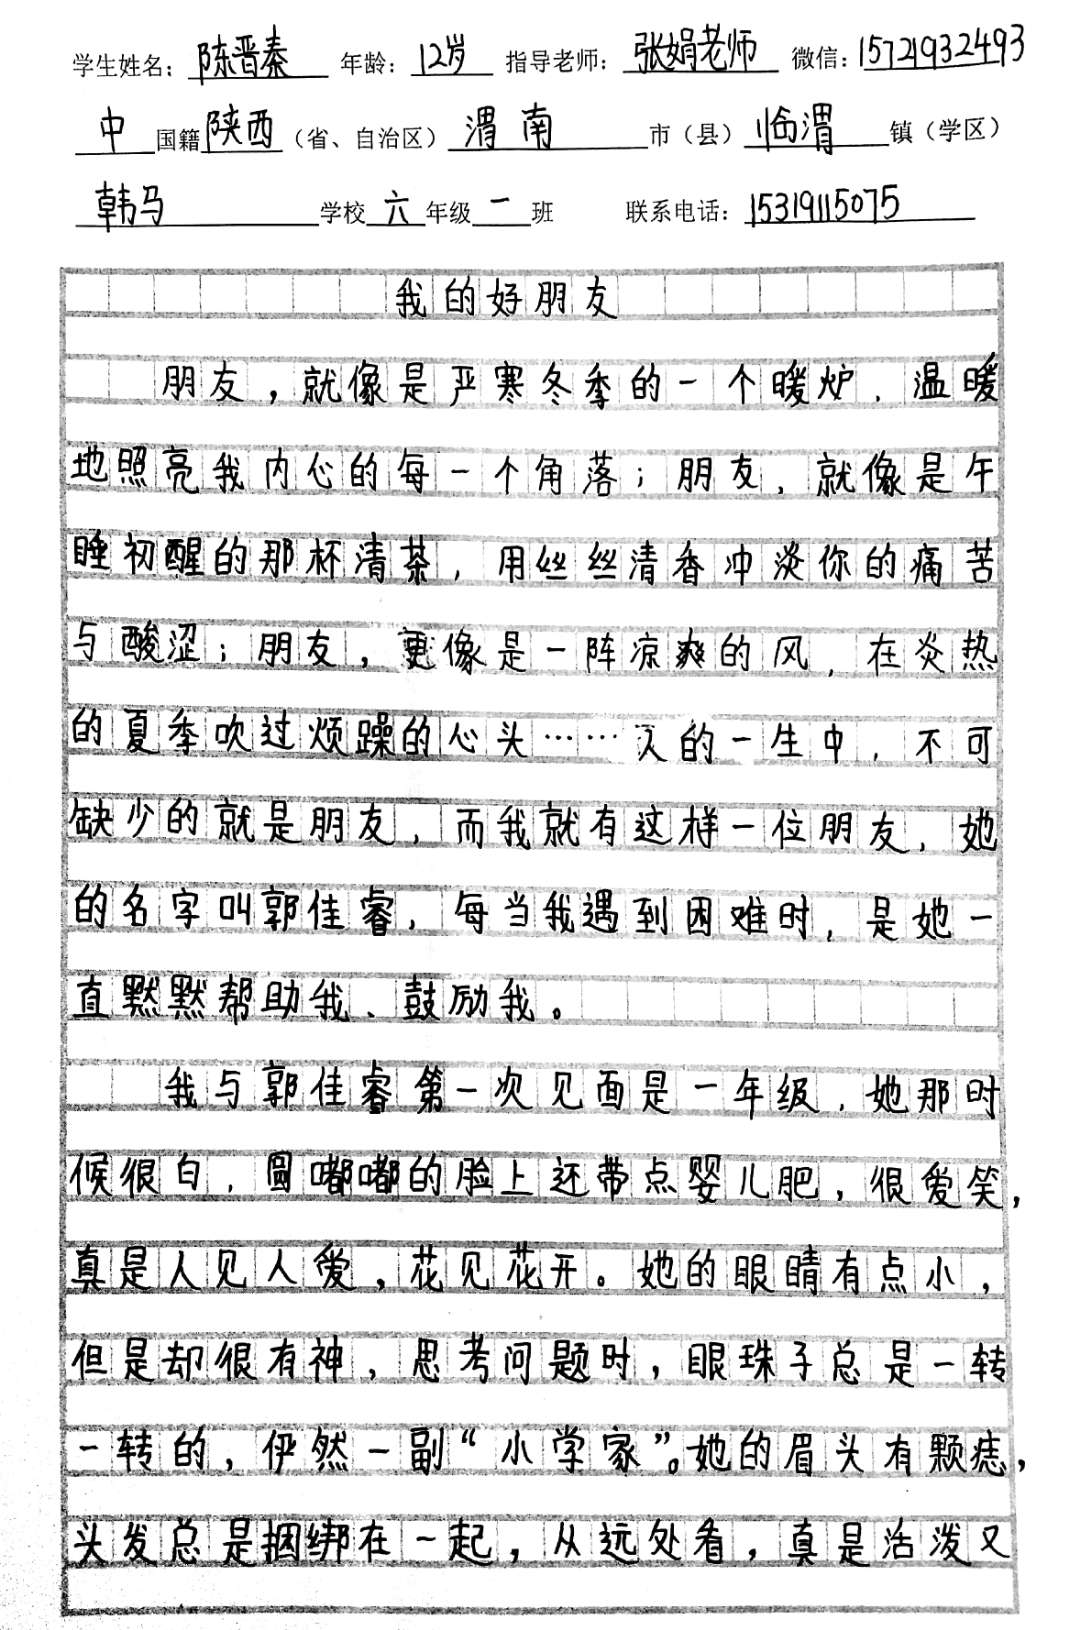 学生姓名：陈晋秦 年龄：12岁 指导老师：张娟老师 微信：15721932493
中国籍陕西（省、自治区）渭南市（县）临渭镇（学区）
韩马学校六年级一班 联系电话：15319115075
我的好朋友
朋友，就像是严寒冬季的一个暖炉，温暖
地照亮我内心的每一个角落；朋友，就像是午
睡初醒的那杯清茶，用丝丝清香冲淡你的痛苦
与酸涩；朋友，更像是一阵凉爽的风，在炎热
的夏季吹过烦躁的心头……人的一生中，不可
缺少的就是朋友，而我就有这样一位朋友，她
的名字叫郭佳睿，每当我遇到困难时，是她一
直默默帮助我、鼓励我。
我与郭佳睿第一次见面是一年级，她那时
候很白，圆嘟嘟的脸上还带点婴儿肥，很爱笑，
真是人见人爱，花见花开。她的眼睛有点小，
但是却很有神，思考问题时，眼珠子总是一转
一转的，伊然一副“小学家”。她的眉头有颗痣，
头发总是捆绑在一起，从远处看，真是活泼又